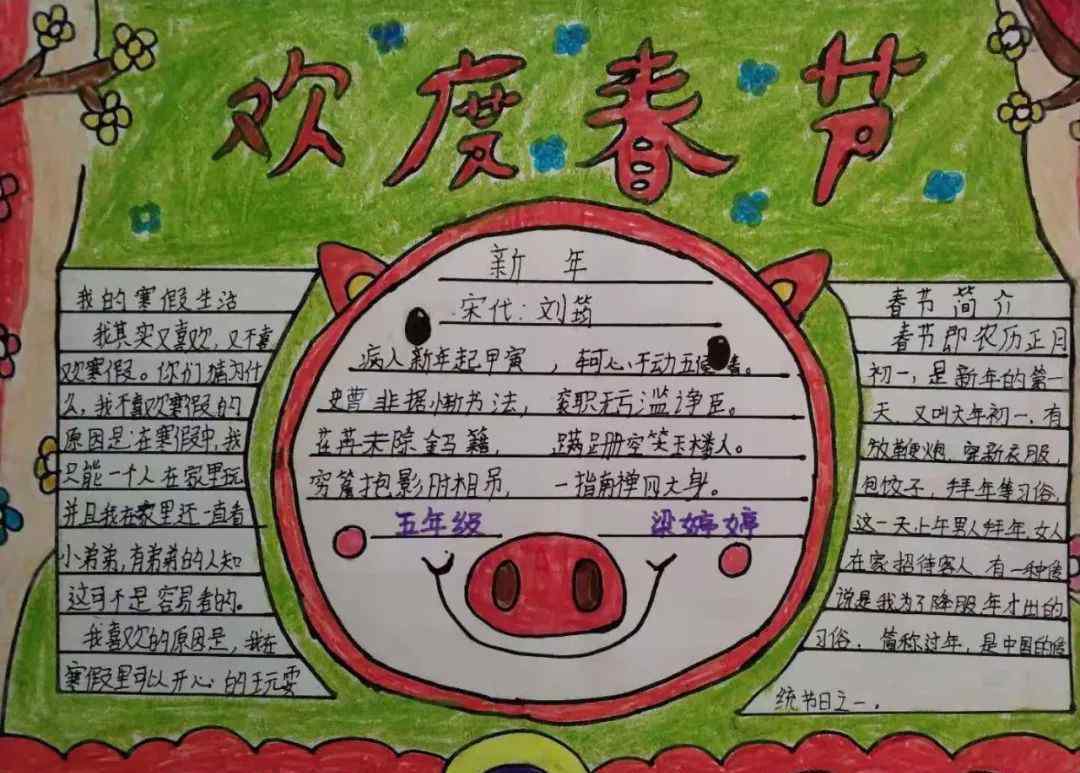 欢度春节
我的寒假生活
我其实又喜欢,又不喜
欢寒假。你们猜为什
么,我不喜欢寒假的
原因是:在寒假中,我
只能一个人在家里玩
并且我在家里还一直看
小弟弟,有弟弟的人知
这可不是容易看的。
我喜欢的原因是,我在
寒假里可以开心的玩耍
新年
宋代:刘筠
病人新年起甲寅,动五侯。
史曹非据惭书法,衮职无亏滥诤臣。
未除金马籍,蹒跚空笑玉楼人。
穷抱影时相吊,一指南禅网大身。
五年级 梁婷婷
春节简介
春节即农历正月
初一,是新年的第一
天,又叫大年初一,有
放鞭炮,穿新衣服,
包饺子,拜年等习俗,
这一天上午男人拜年,女人
在家招待客人,有一种
说是我为了降服年才出的
习俗.简称过年,是中国的
统节日之一.